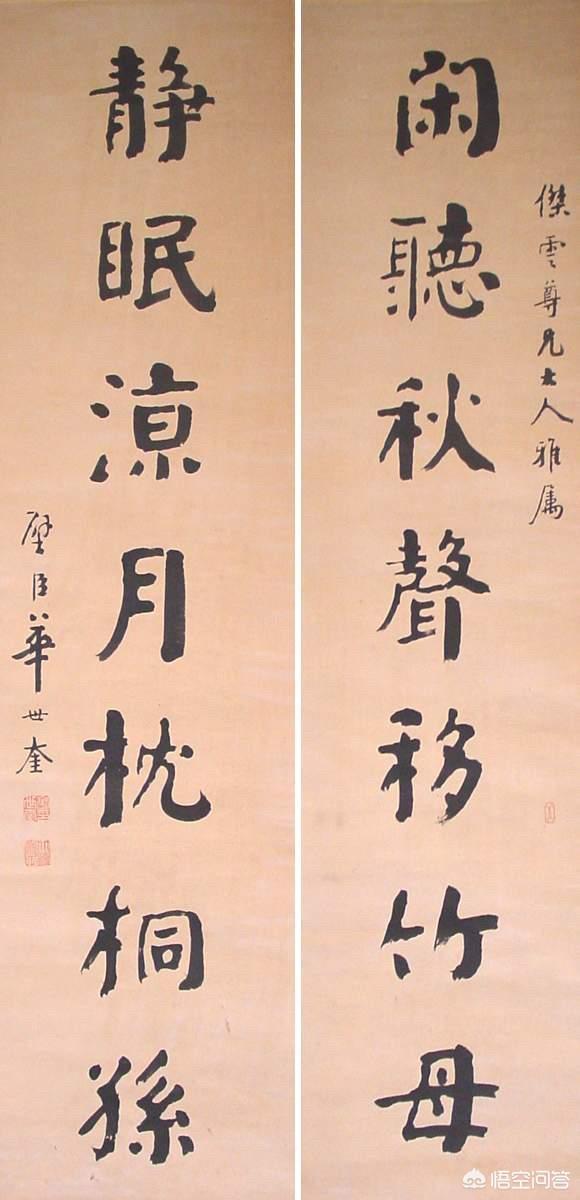 傑雲尊兄大人雅属
闲聽秋聲移竹母
静眠涼月枕桐孫
壁臣華世奎
悟空问答